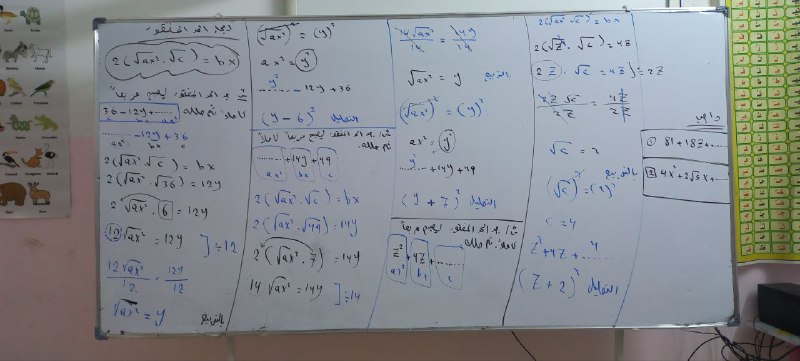 2(√ax² . √c) = bx
36 - 12y + ......
ax² bx c
...... - 12y + 36
ax² bx c
2(√ax² . √c) = bx
2(√ax² . √36) = 12y
2 √ax² . 6 = 12y
12 √ax² = 12y ] ÷ 12
12 √ax² / 12 = 12y / 12
√ax² = y بالتربيع
(√ax²)² = (y)²
ax² = y²
y²
...... - 12y + 36
(y - 6)² التحليل
...... + 14y + 49
ax² bx c
2(√ax² . √c) = bx
2(√ax² . √49) = 14y
2(√ax² . 7) = 14y
14 √ax² = 14y ] ÷ 14
14 √ax² / 14 = 14y / 14
√ax² = y بالتربيع
(√ax²)² = (y)²
ax² = y²
y²
...... + 14y + 49
(y + 7)² التحليل
z² + 4z + ......
ax² bx c
2(√ax² . √c) = bx
2(√z² . √c) = 4z
2z . √c = 4z ] ÷ 2z
2z √c / 2z = 4z / 2z
√c = 2
(√c)² = (2)² بالتربيع
c = 4
z² + 4z + ...... 4
(z + 2)² التحليل
واجب
① 81 + 18z + ......
② 4x² + 2√3x + ......